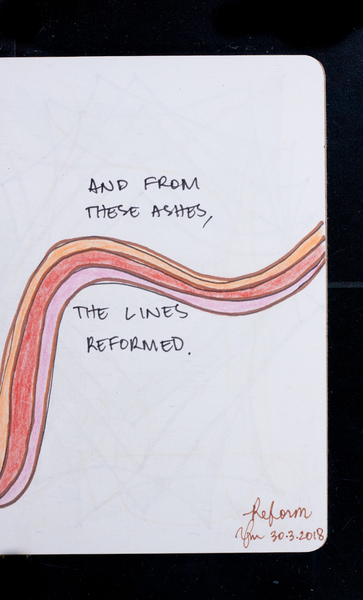 AND FROM
THESE ASHES,
THE LINES
REFORMED.
Reform
30.3.2018